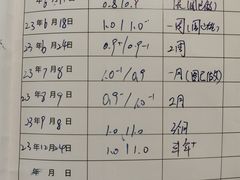 0.8/0.9
23年6月18日 1.0/1.0⁻ 一周
23年6月24日 0.9⁺/0.9⁻¹ 2周
23年7月8日 1.0⁻¹/0.9 一月
23年8月9日 0.9⁻/1.0⁻¹ 2月
23年9月8日 1.0/1.0 3个月
23年12月24日 1.0/1.0 半年⁺
年 月 日